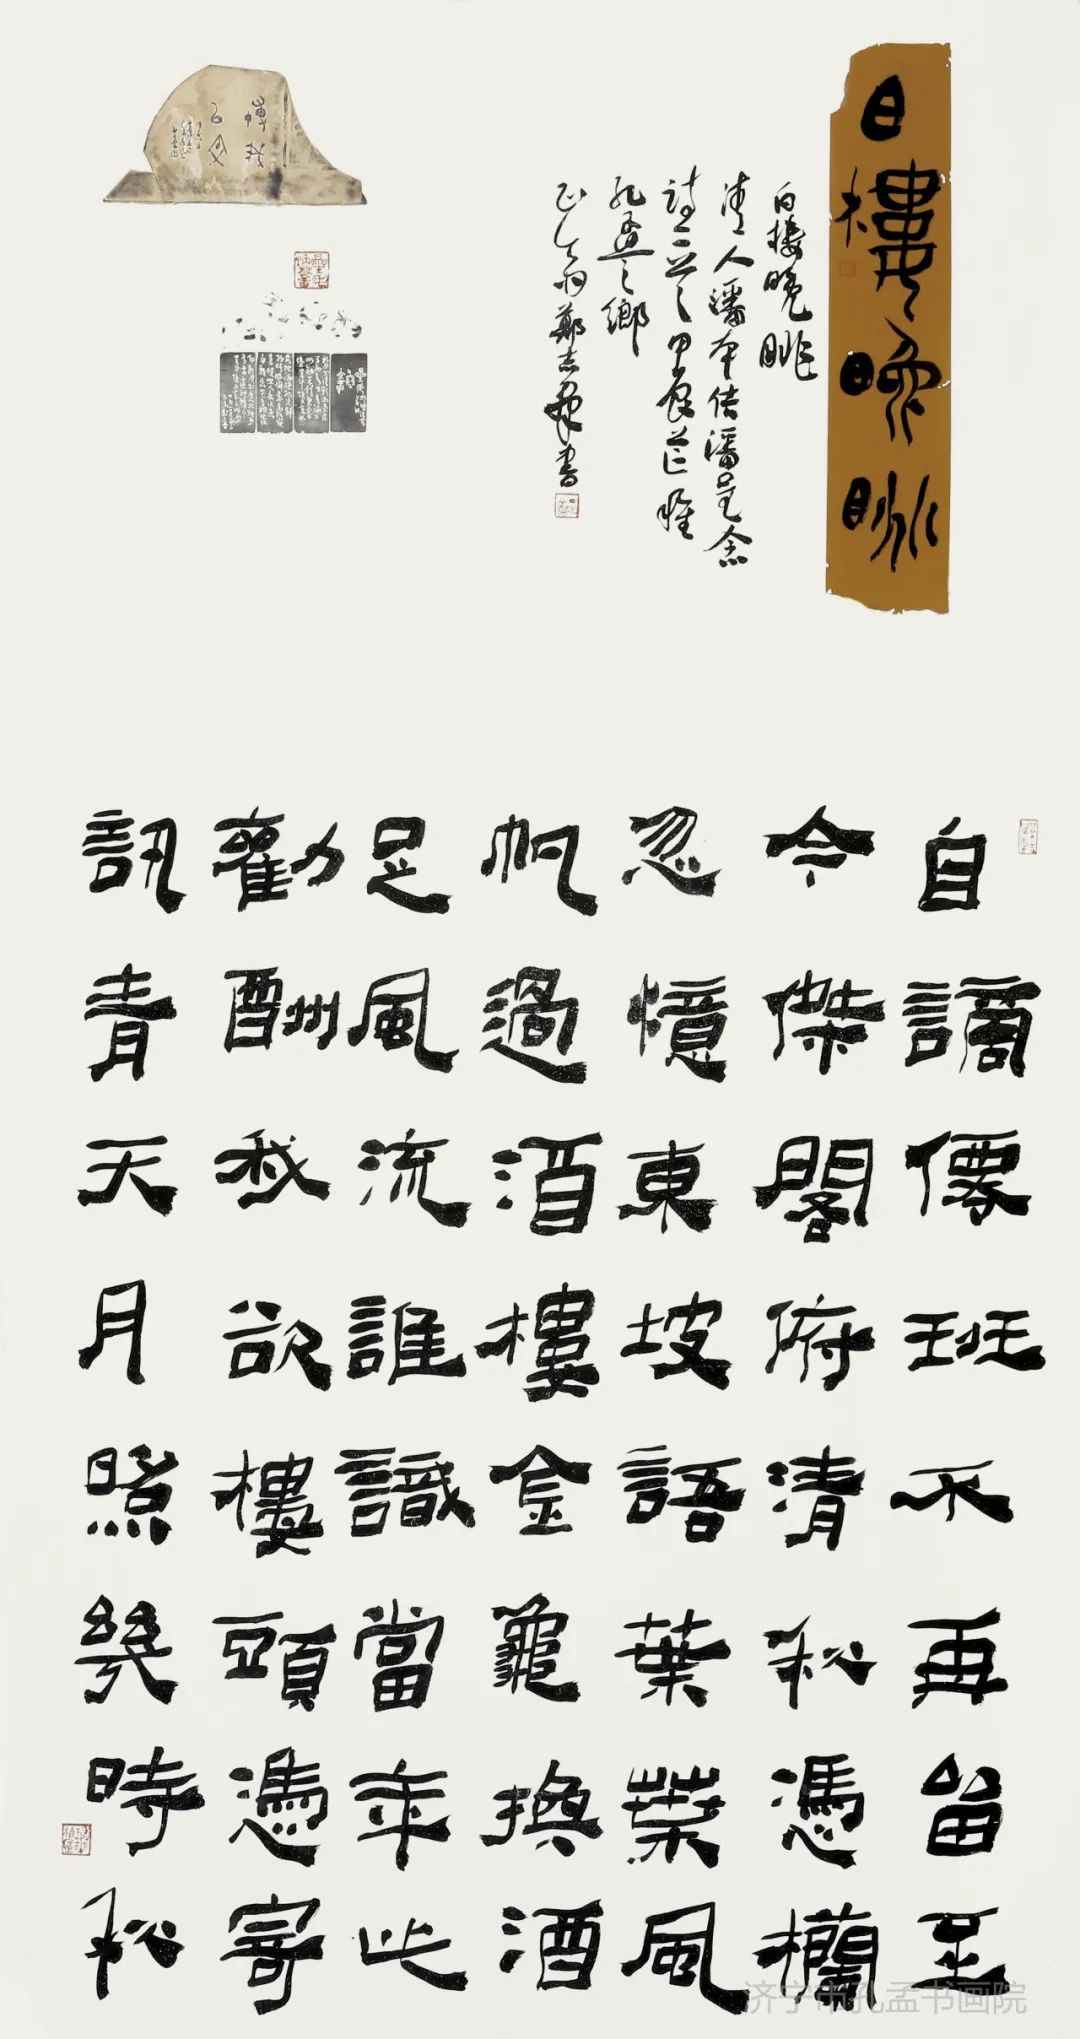 白樓晚眺
白樓晚眺
清人潘本佶潘呈念
詩二首之甲辰芒種
孔孟之鄉
鄭志群書
自謫僊班不再留至
今傑閣俯清秋憑欄
忽憶東坡語葉葉風
帆過酒樓金龜換酒
足風流誰識當年此
勸酬我欲樓頭憑寄
訊青天月照幾時秋
济宁市孔孟书画院